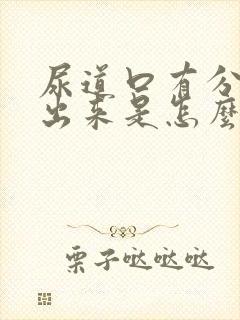 尿道口有分
出来是怎麼
栗子哒哒哒